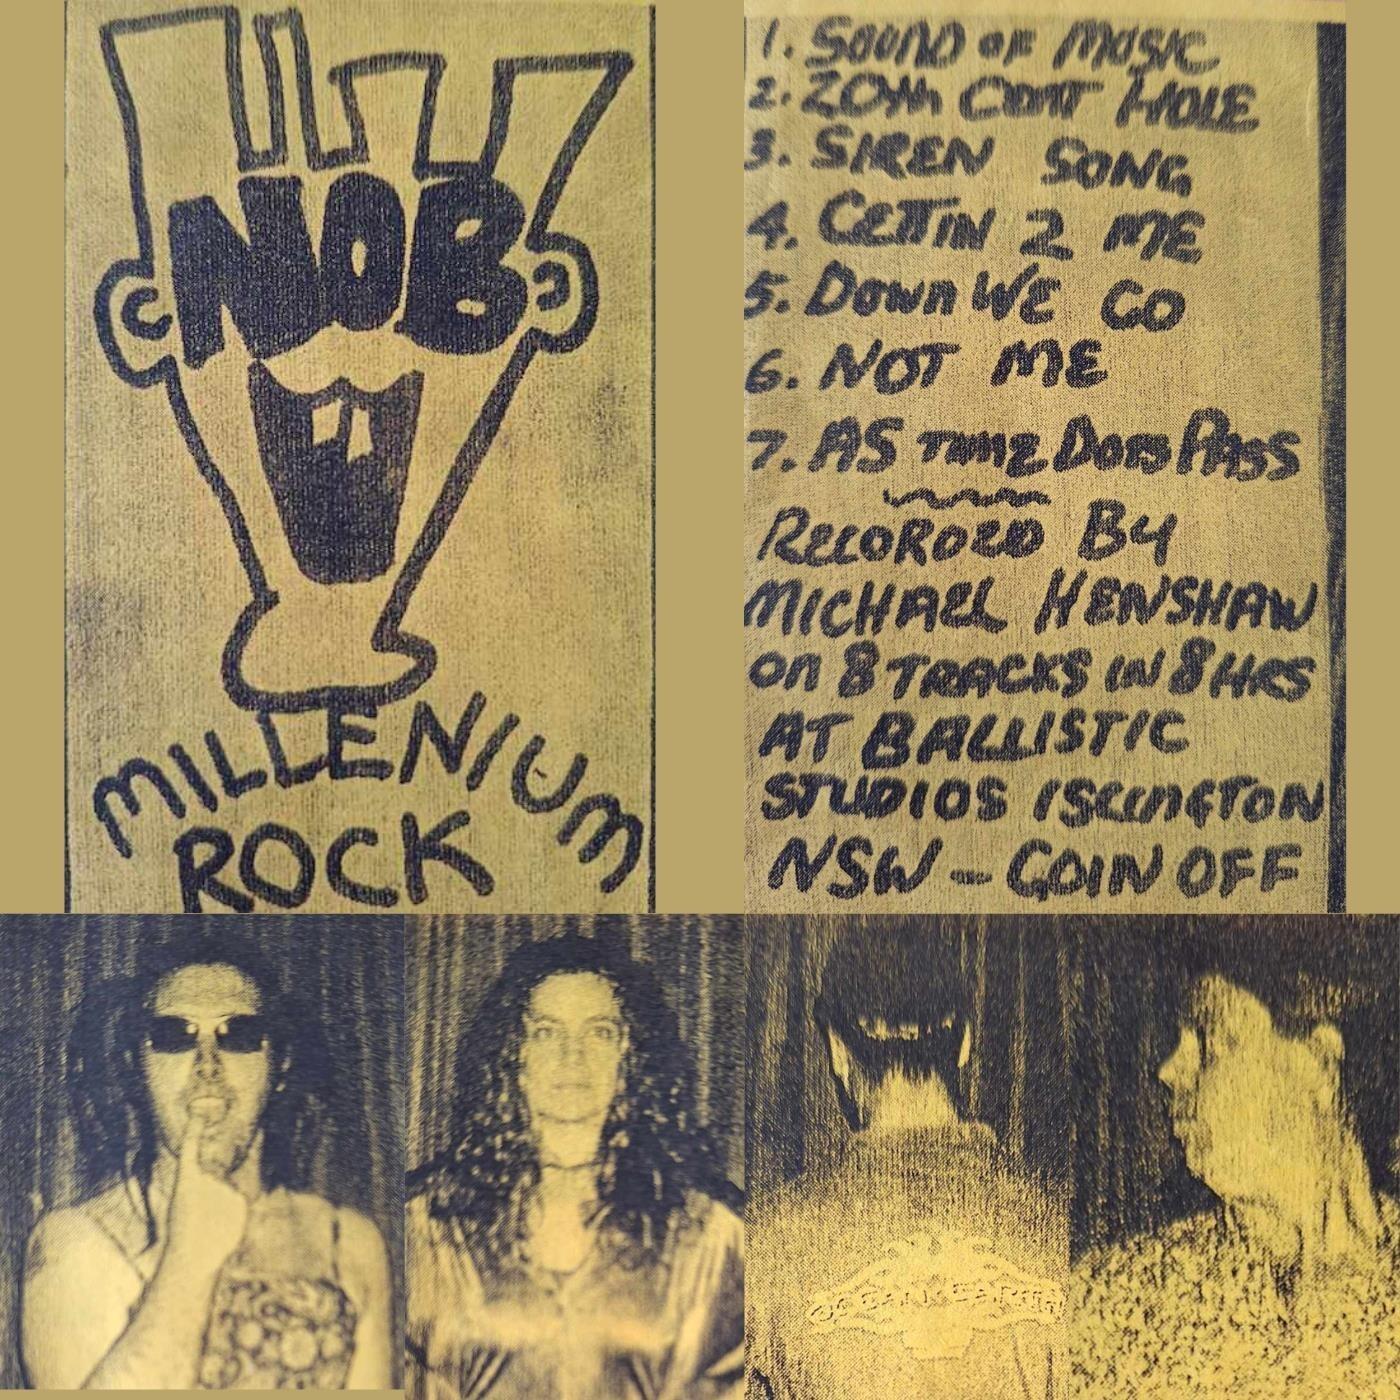 NOB
MILLENIUM
ROCK
1. SOUND OF MUSIC
2. 20th CENT HOLE
3. SIREN SONG
4. GETTIN 2 ME
5. DOWN WE GO
6. NOT ME
7. AS TIME DOES PASS
RECORDED BY
MICHAEL HENSHAW
on 8 TRACKS IN 8 HRS
AT BALLISTIC
STUDIOS ISLINGTON
NSW - GOIN OFF
OCEAN EARTH